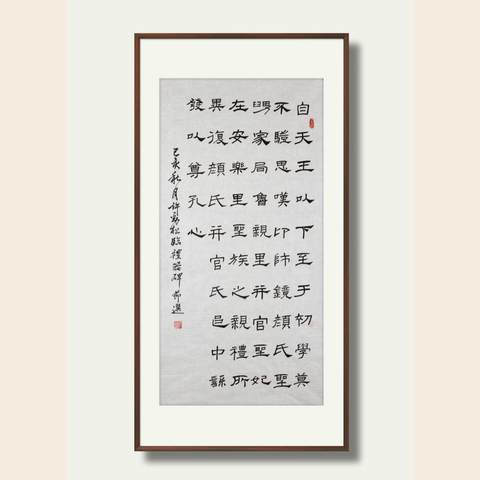 自天王以下至于初學莫
不驩思嘆卬師鏡顏氏聖
舅家居魯親里并官聖妃
在安樂里聖族之親禮所
異復顏氏并官氏邑中繇
發以尊孔心
己亥秋月許松臨禮器碑節選